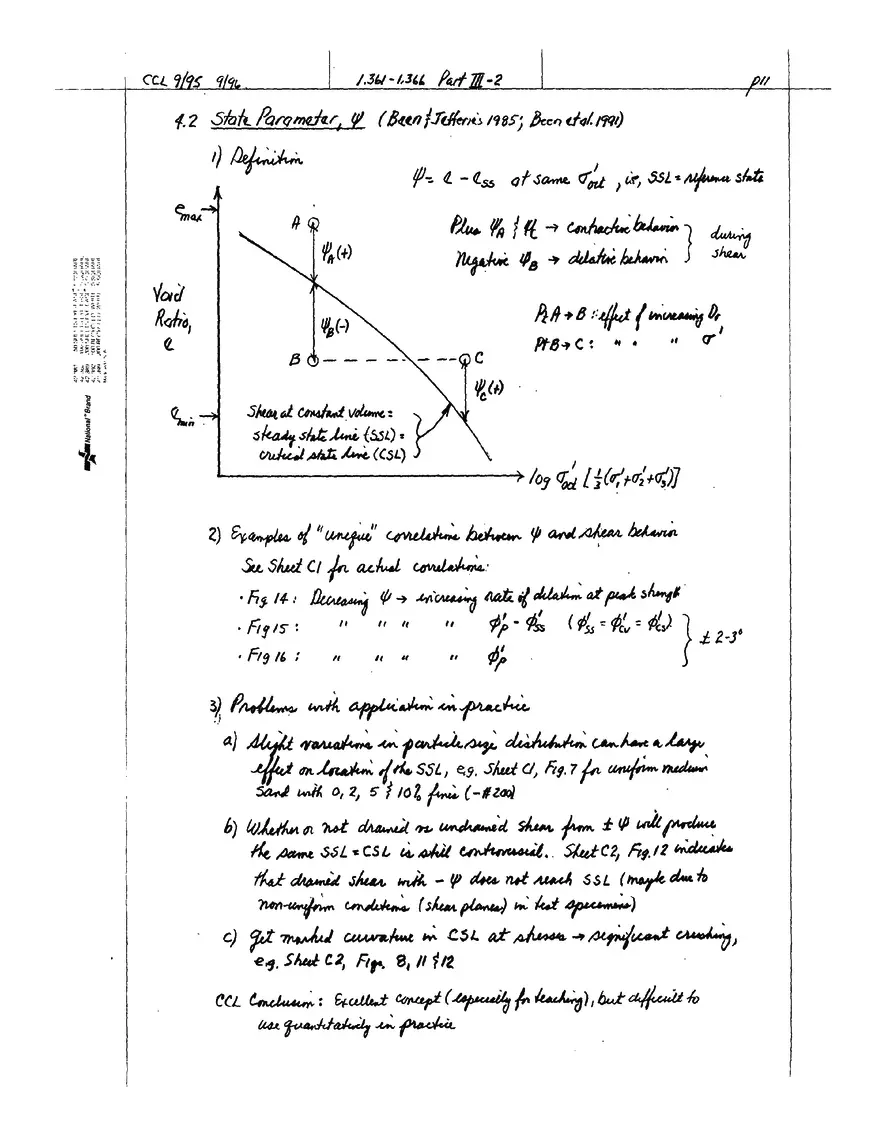 CCL 9/95 9/96 1.361-1.366 Part III-2 p11
4.2 State Parameter, ψ (Been & Jefferies 1985; Been et al. 1991)
1) Definition
ψ = e - e_ss at same σ'oct, ie, SSL = reference state
e_max
A
ψ_A(+)
Plus ψ_A & ψ_C → contractive behavior
Negative ψ_B → dilative behavior
during shear
Void
Ratio,
e
ψ_B(-)
Pt A → B : effect of increasing Dr
Pt B → C : " " " σ'
B
C
ψ_C(+)
e_min
Shear at constant volume =
steady state line (SSL) =
critical state line (CSL)
log σ'oct [⅓(σ'1+σ'2+σ'3)]
2) Examples of "unique" correlations between ψ and shear behavior
See Sheet C1 for actual correlations:
• Fig 14 : Decreasing ψ → increasing rate of dilation at peak strength
• Fig 15 : " " " " φ'p - φ'ss (φ'ss = φ'cv = φ'cs)
± 2-3°
• Fig 16 : " " " " φ'p
3) Problems with application in practice
a) Slight variations in particle size distribution can have a large
effect on location of the SSL, e.g. Sheet C1, Fig. 7 for uniform medium
sand with 0, 2, 5 & 10% fines (-#200)
b) Whether or not drained vs undrained shear from ± ψ will produce
the same SSL = CSL is still controversial. Sheet C2, Fig. 12 indicates
that drained shear with - ψ does not reach SSL (maybe due to
non-uniform conditions (shear planes) in test specimens)
c) Get marked curvature in CSL at stresses → significant crushing,
e.g. Sheet C2, Figs. 8, 11 & 12
CCL Conclusion : Excellent concept (especially for teaching), but difficult to
use quantitatively in practice
National® Brand